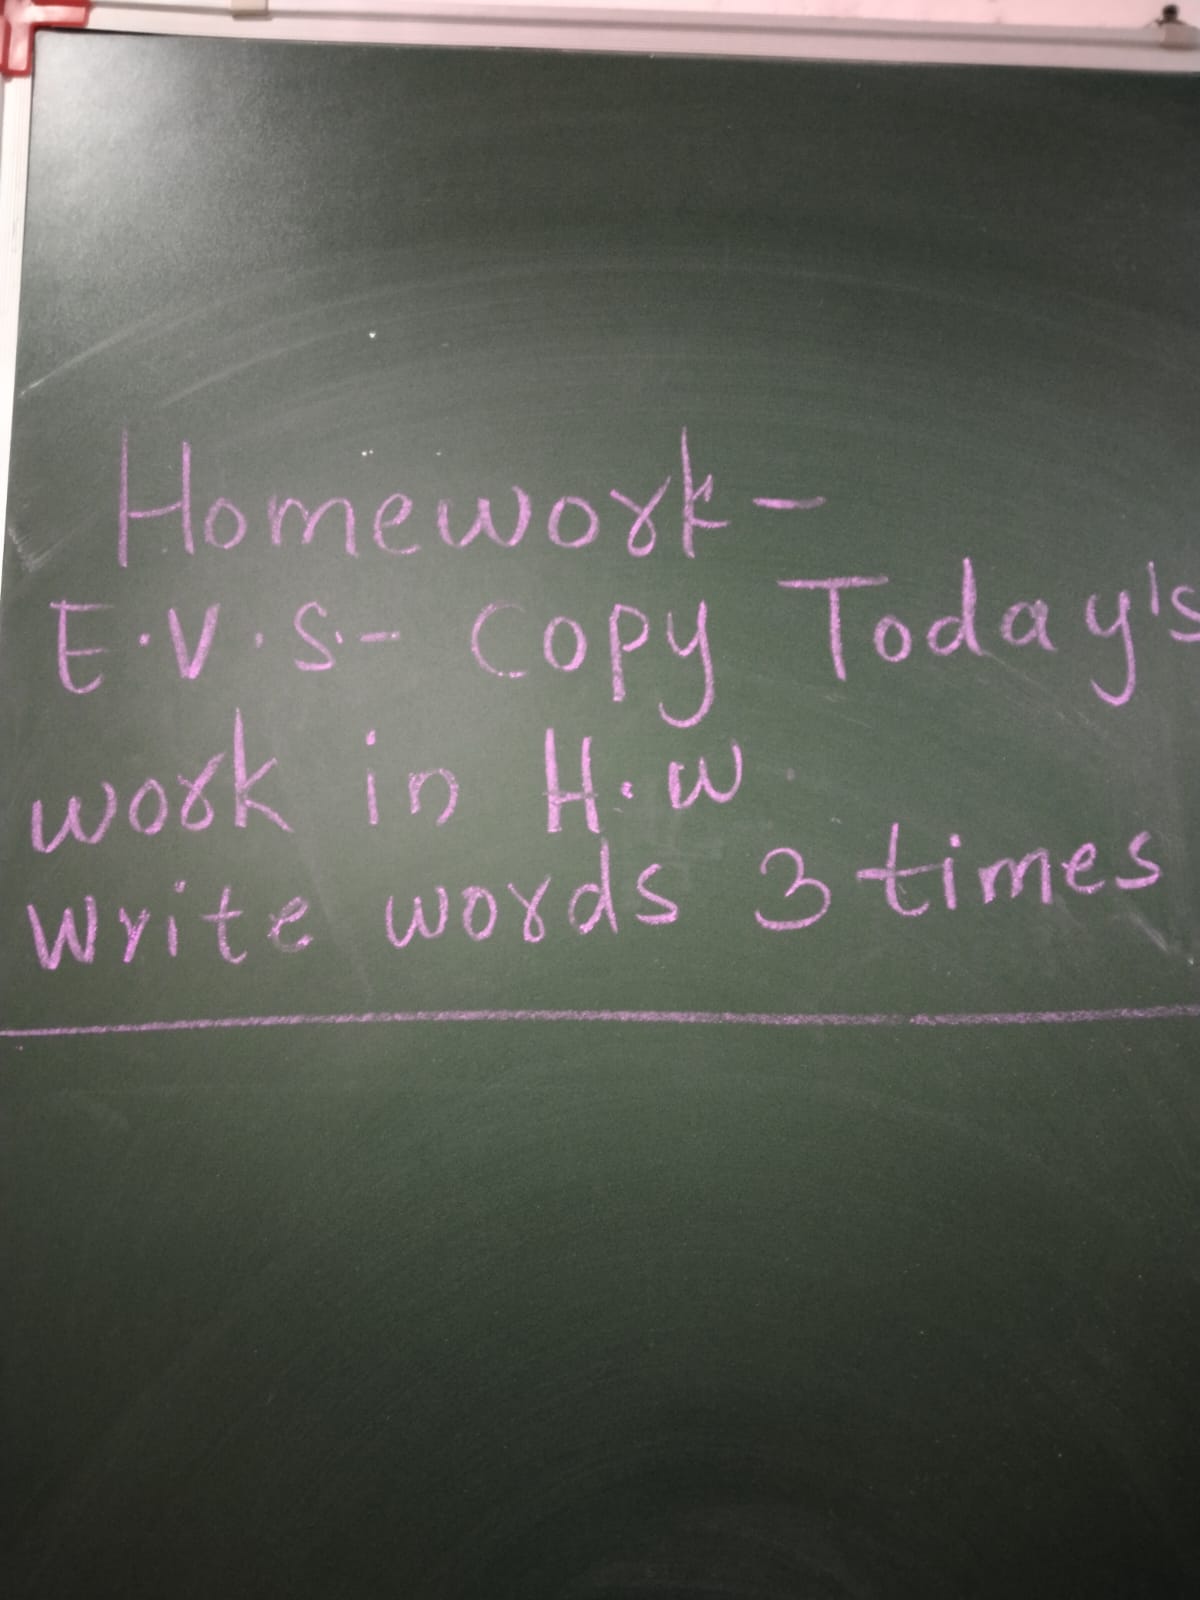 Homework-
E.V.S.- Copy Today's
work in H.W.
Write words 3 times